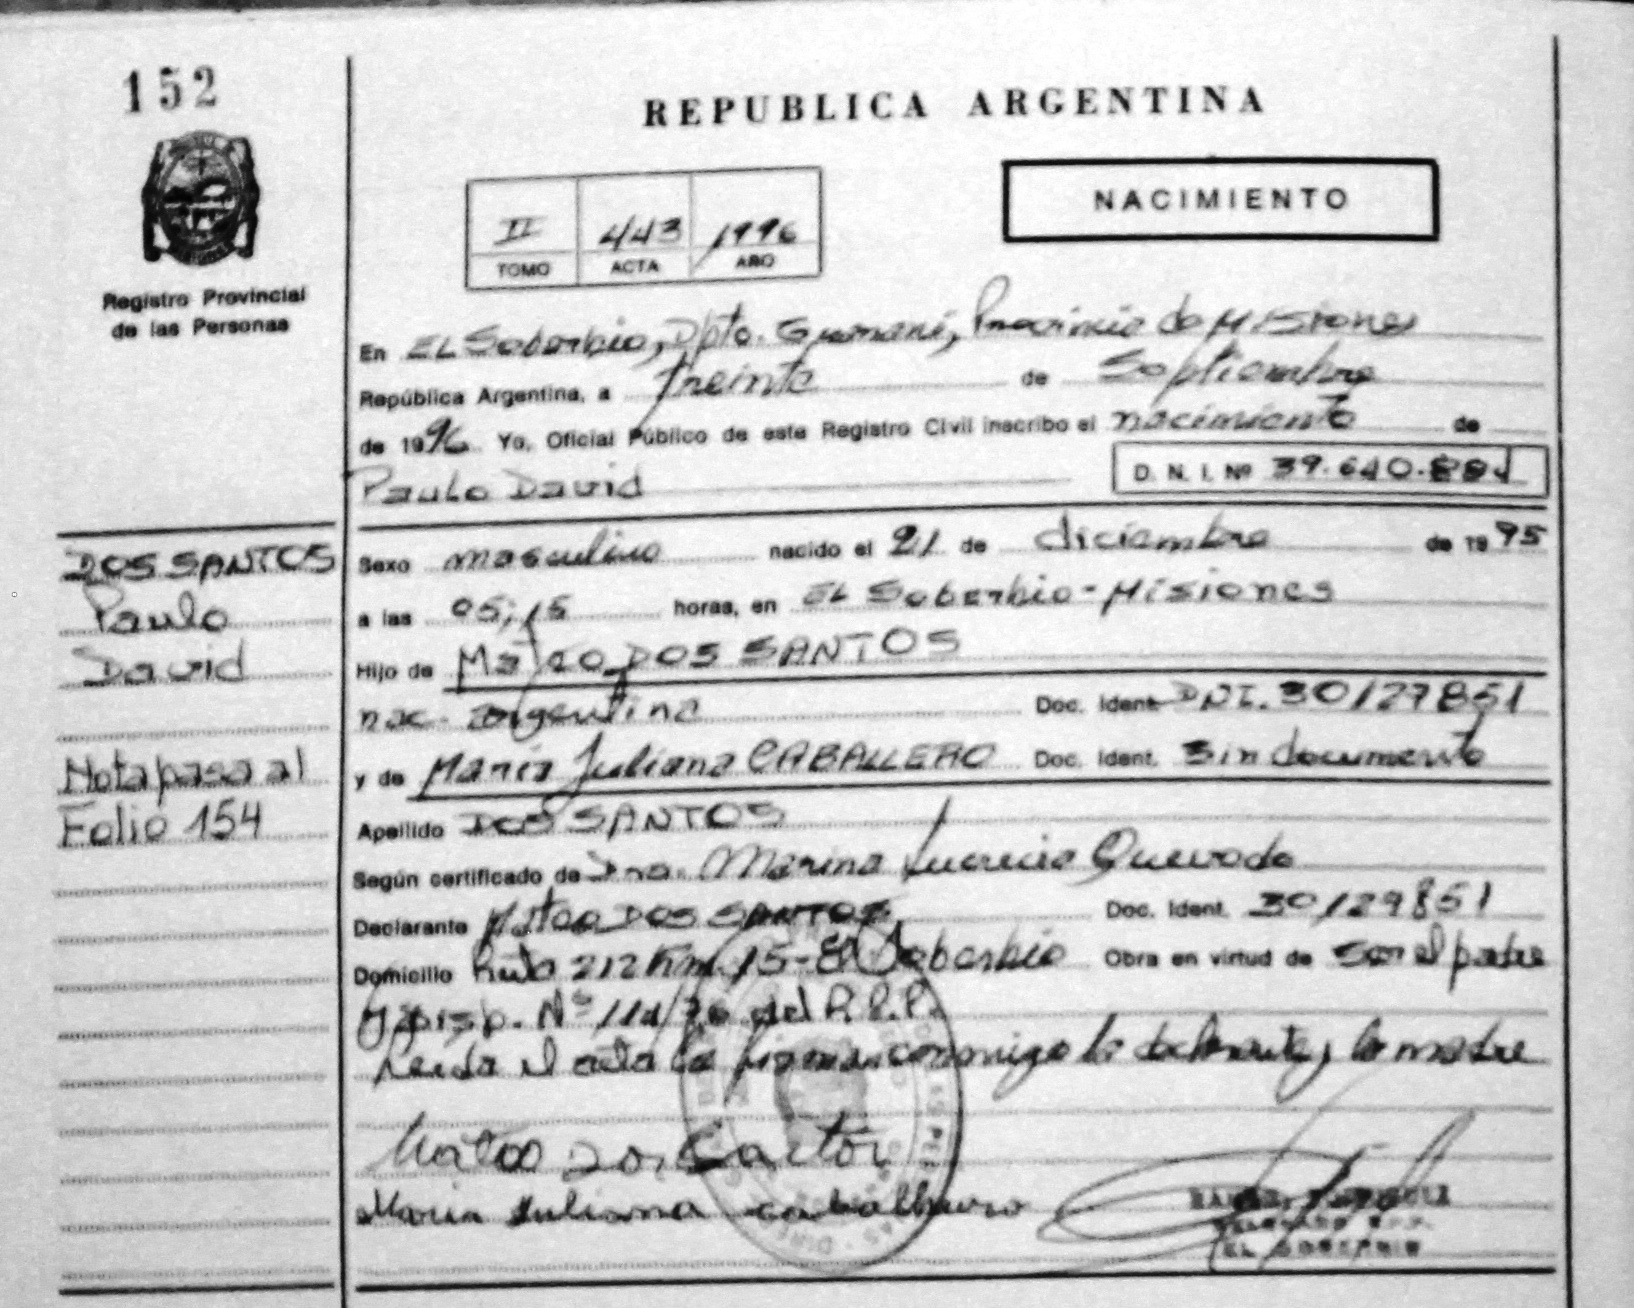 152
REPUBLICA ARGENTINA
NACIMIENTO
II 443 1996
TOMO ACTA AÑO
Registro Provincial
de las Personas
En EL Soberbio, Dpto. Guaraní, Provincia de Misiones
República Argentina, a treinta de Septiembre
de 1996 Yo, Oficial Público de este Registro Civil inscribo el nacimiento de
Paulo David
D. N. I. Nº 39.640.884
DOS SANTOS
Paulo
David
Nota pasa al
Folio 154
Sexo masculino nacido el 21 de diciembre de 1995
a las 05;15 horas, en EL Soberbio-Misiones
Hijo de Mateo DOS SANTOS
nac. argentina Doc. Ident. DNI. 30127851
y de María Juliana CABALLERO Doc. Ident. Sin documento
Apellido DOS SANTOS
Según certificado de Dra. Marina Lucrecia Quevedo
Declarante Mateo DOS SANTOS Doc. Ident. 30129851
Domicilio Ruta 212 Km. 15-El Soberbio Obra en virtud de ser el padre
y Disp. Nº 114/96 del R.P.P.
Leída el acta la firman conmigo el declarante y la madre
Mateo Dos Santos
Maria Juliana
EL SOBERBIO